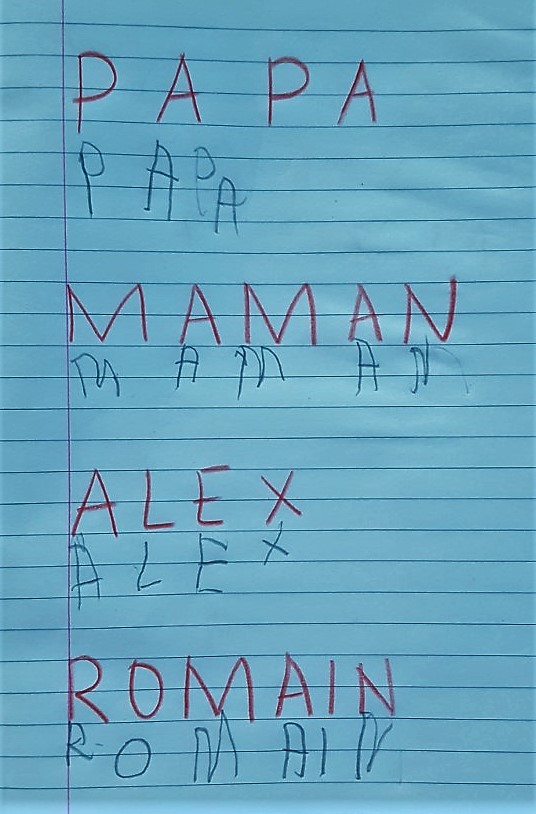 PAPA
PAPA
MAMAN
MAMAN
ALEX
ALEX
ROMAIN
ROMAIN